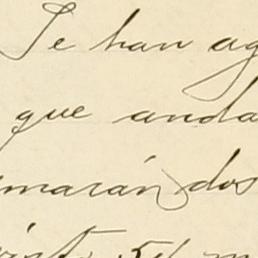 Se han ag
que anda
marán dos